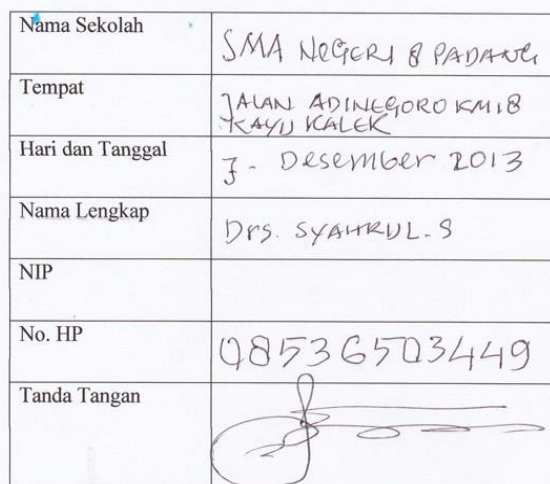 Nama Sekolah
SMA NEGERI 8 PADANG
Tempat
JALAN ADINEGORO KM18
KAYU KALEK
Hari dan Tanggal
7 - Desember 2013
Nama Lengkap
Drs. SYAHRUL. S
NIP
No. HP
08536503449
Tanda Tangan